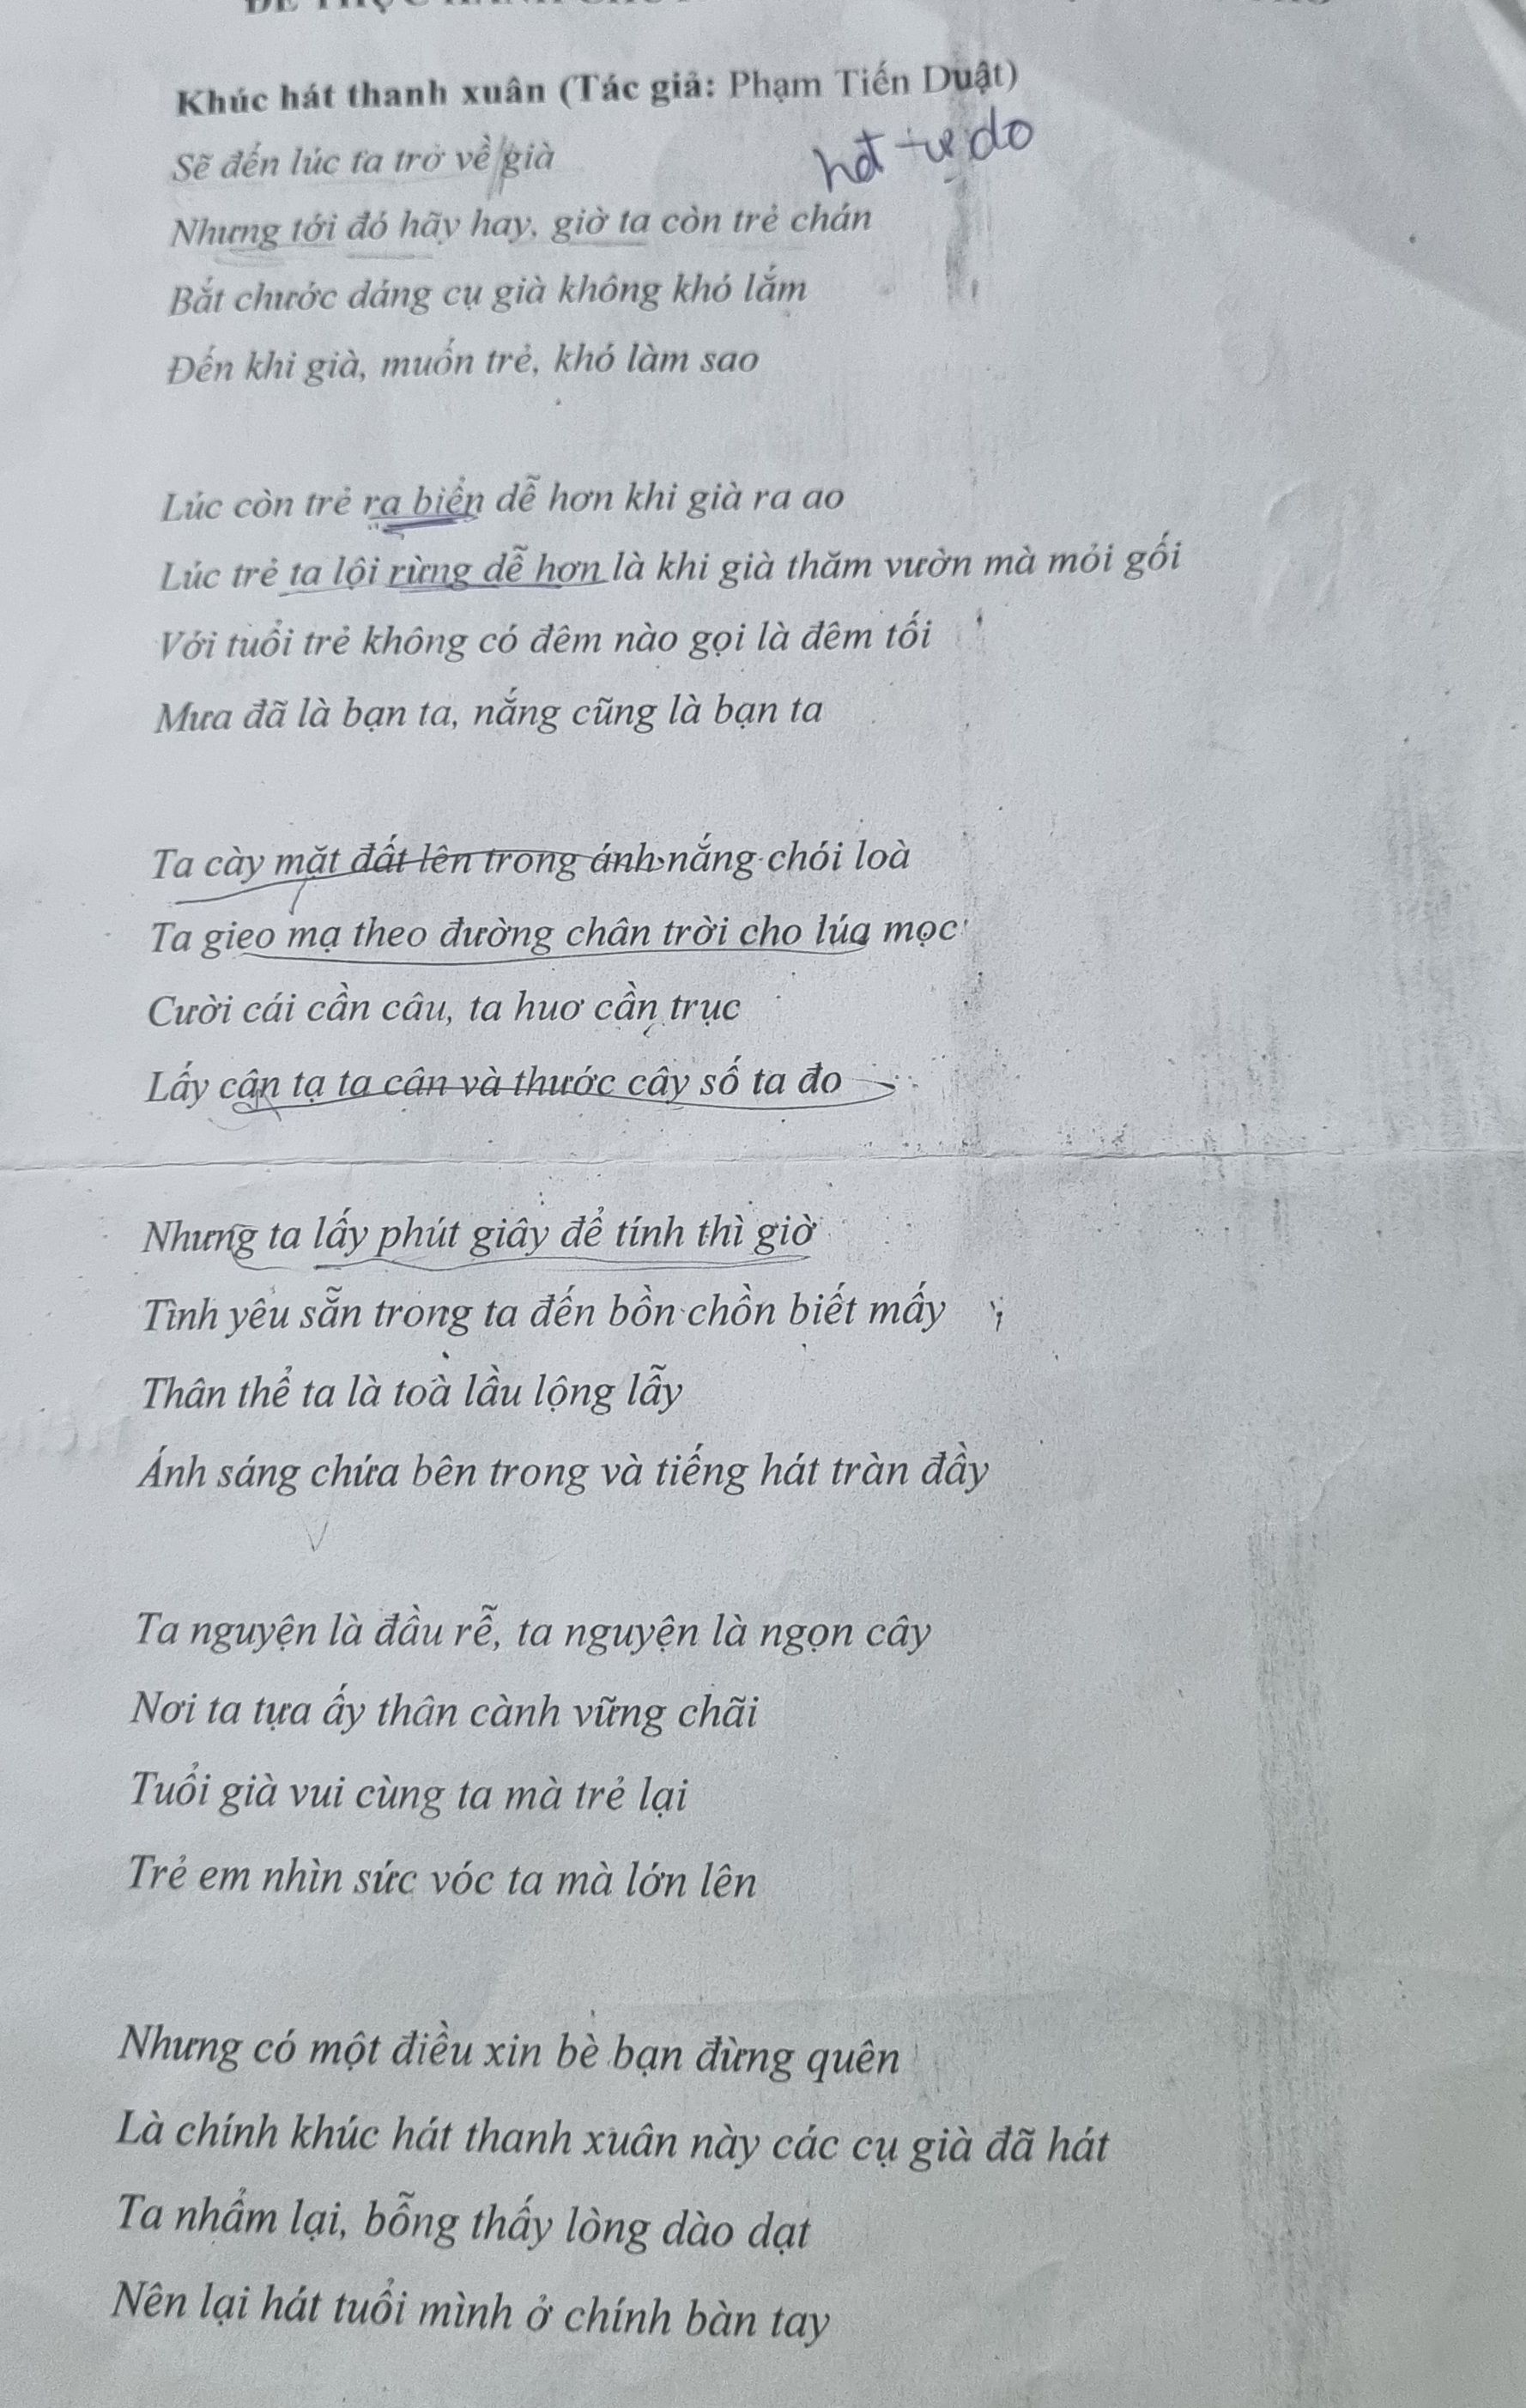 Khúc hát thanh xuân (Tác giả: Phạm Tiến Duật)
Sẽ đến lúc ta trở về già
tự do
Nhưng tới đó hãy hay, giờ ta còn trẻ chán
Bắt chước dáng cụ già không khó lắm
Đến khi già, muốn trẻ, khó làm sao
Lúc còn trẻ ra biển dễ hơn khi già ra ao
Lúc trẻ ta lội rừng dễ hơn là khi già thăm vườn mà mỏi gối
Với tuổi trẻ không có đêm nào gọi là đêm tối
Mưa đã là bạn ta, nắng cũng là bạn ta
Ta cày mặt đất lên trong ánh nắng chói loà
Ta gieo mạ theo đường chân trời cho lúa mọc
Cười cái cần câu, ta huơ cần trục
Lấy cân tạ ta cân và thước cây số ta đo
Nhưng ta lấy phút giây để tính thì giờ
Tình yêu sẵn trong ta đến bồn chồn biết mấy
Thân thể ta là toà lầu lộng lẫy
Ánh sáng chứa bên trong và tiếng hát tràn đầy
Ta nguyện là đầu rễ, ta nguyện là ngọn cây
Nơi ta tựa ấy thân cành vững chãi
Tuổi già vui cùng ta mà trẻ lại
Trẻ em nhìn sức vóc ta mà lớn lên
Nhưng có một điều xin bè bạn đừng quên
Là chính khúc hát thanh xuân này các cụ già đã hát
Ta nhẩm lại, bỗng thấy lòng dào dạt
Nên lại hát tuổi mình ở chính bàn tay